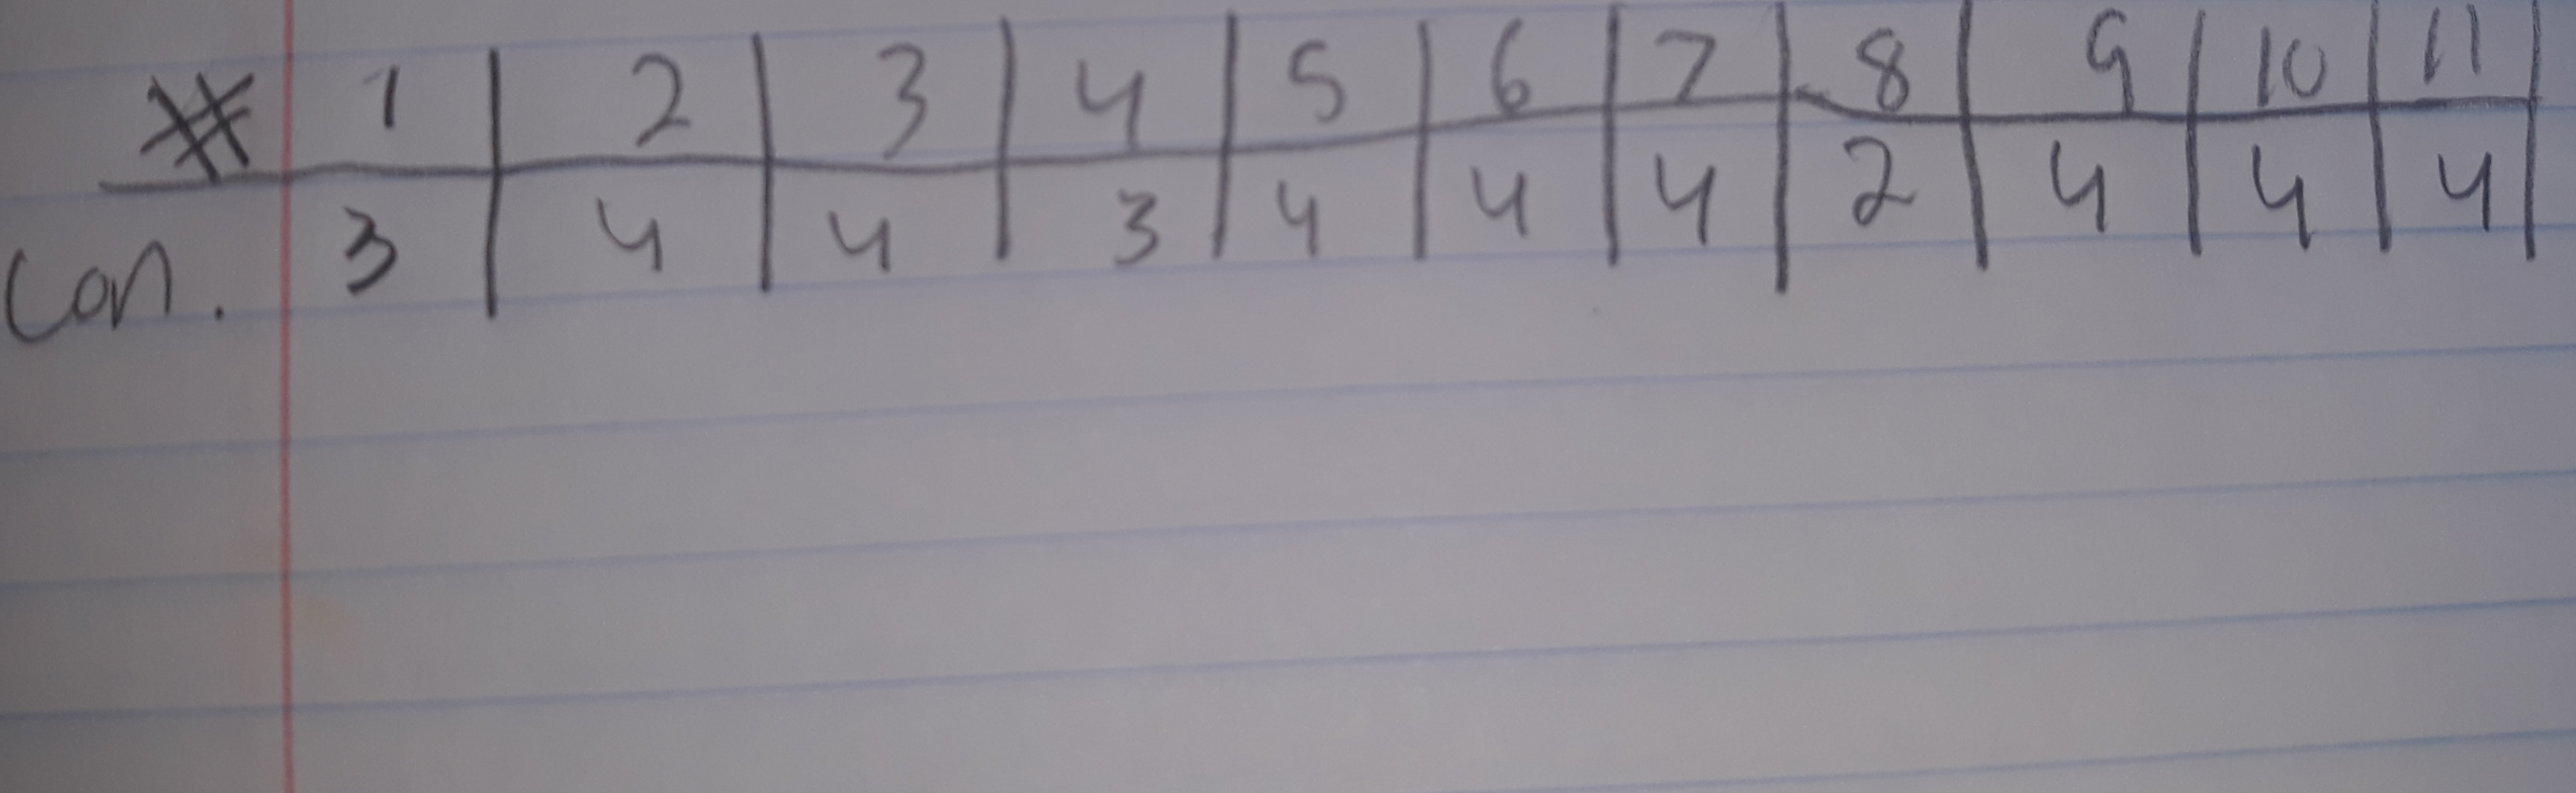 # 1 2 3 4 5 6 7 8 9 10 11
Con. 3 4 4 3 4 4 4 2 4 4 4